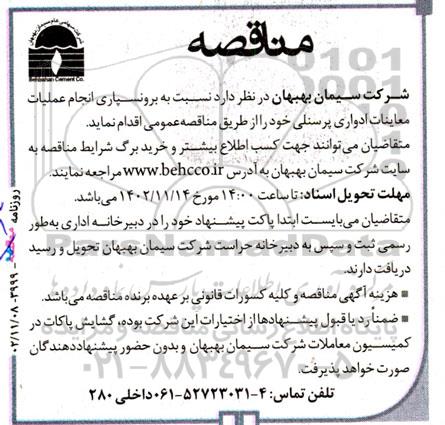 مناقصه
Behbahan Cement Co.
شرکت سیمان بهبهان در نظر دارد نسبت به برونسپاری انجام عملیات
معاینات ادواری پرسنلی خود را از طریق مناقصه عمومی اقدام نماید.
متقاضیان می‌توانند جهت کسب اطلاع بیشتر و خرید برگ شرایط مناقصه به
سایت شرکت سیمان بهبهان به آدرس www.behcco.ir مراجعه نمایند.
مهلت تحویل اسناد: تا ساعت ۱۴:۰۰ مورخ ۱۴۰۲/۱۱/۱۴ می‌باشد.
متقاضیان می‌بایست ابتدا پاکت پیشنهاد خود را در دبیرخانه اداری به‌طور
رسمی ثبت و سپس به دبیرخانه حراست شرکت سیمان بهبهان تحویل و رسید
دریافت دارند.
▪ هزینه آگهی مناقصه و کلیه کسورات قانونی بر عهده برنده مناقصه می‌باشد.
▪ ضمناً رد یا قبول پیشنهادها از اختیارات این شرکت بوده، گشایش پاکات در
کمیسیون معاملات شرکت سیمان بهبهان و بدون حضور پیشنهاددهندگان
صورت خواهد پذیرفت.
تلفن تماس: ۴-۵۲۷۲۳۰۳۱-۰۶۱ داخلی ۲۸۰
روزنامه
۰۲/۱۱/۰۸-۳۹۹۹
۰۲۱-۸۸۳۴۹۶۷۰-۵